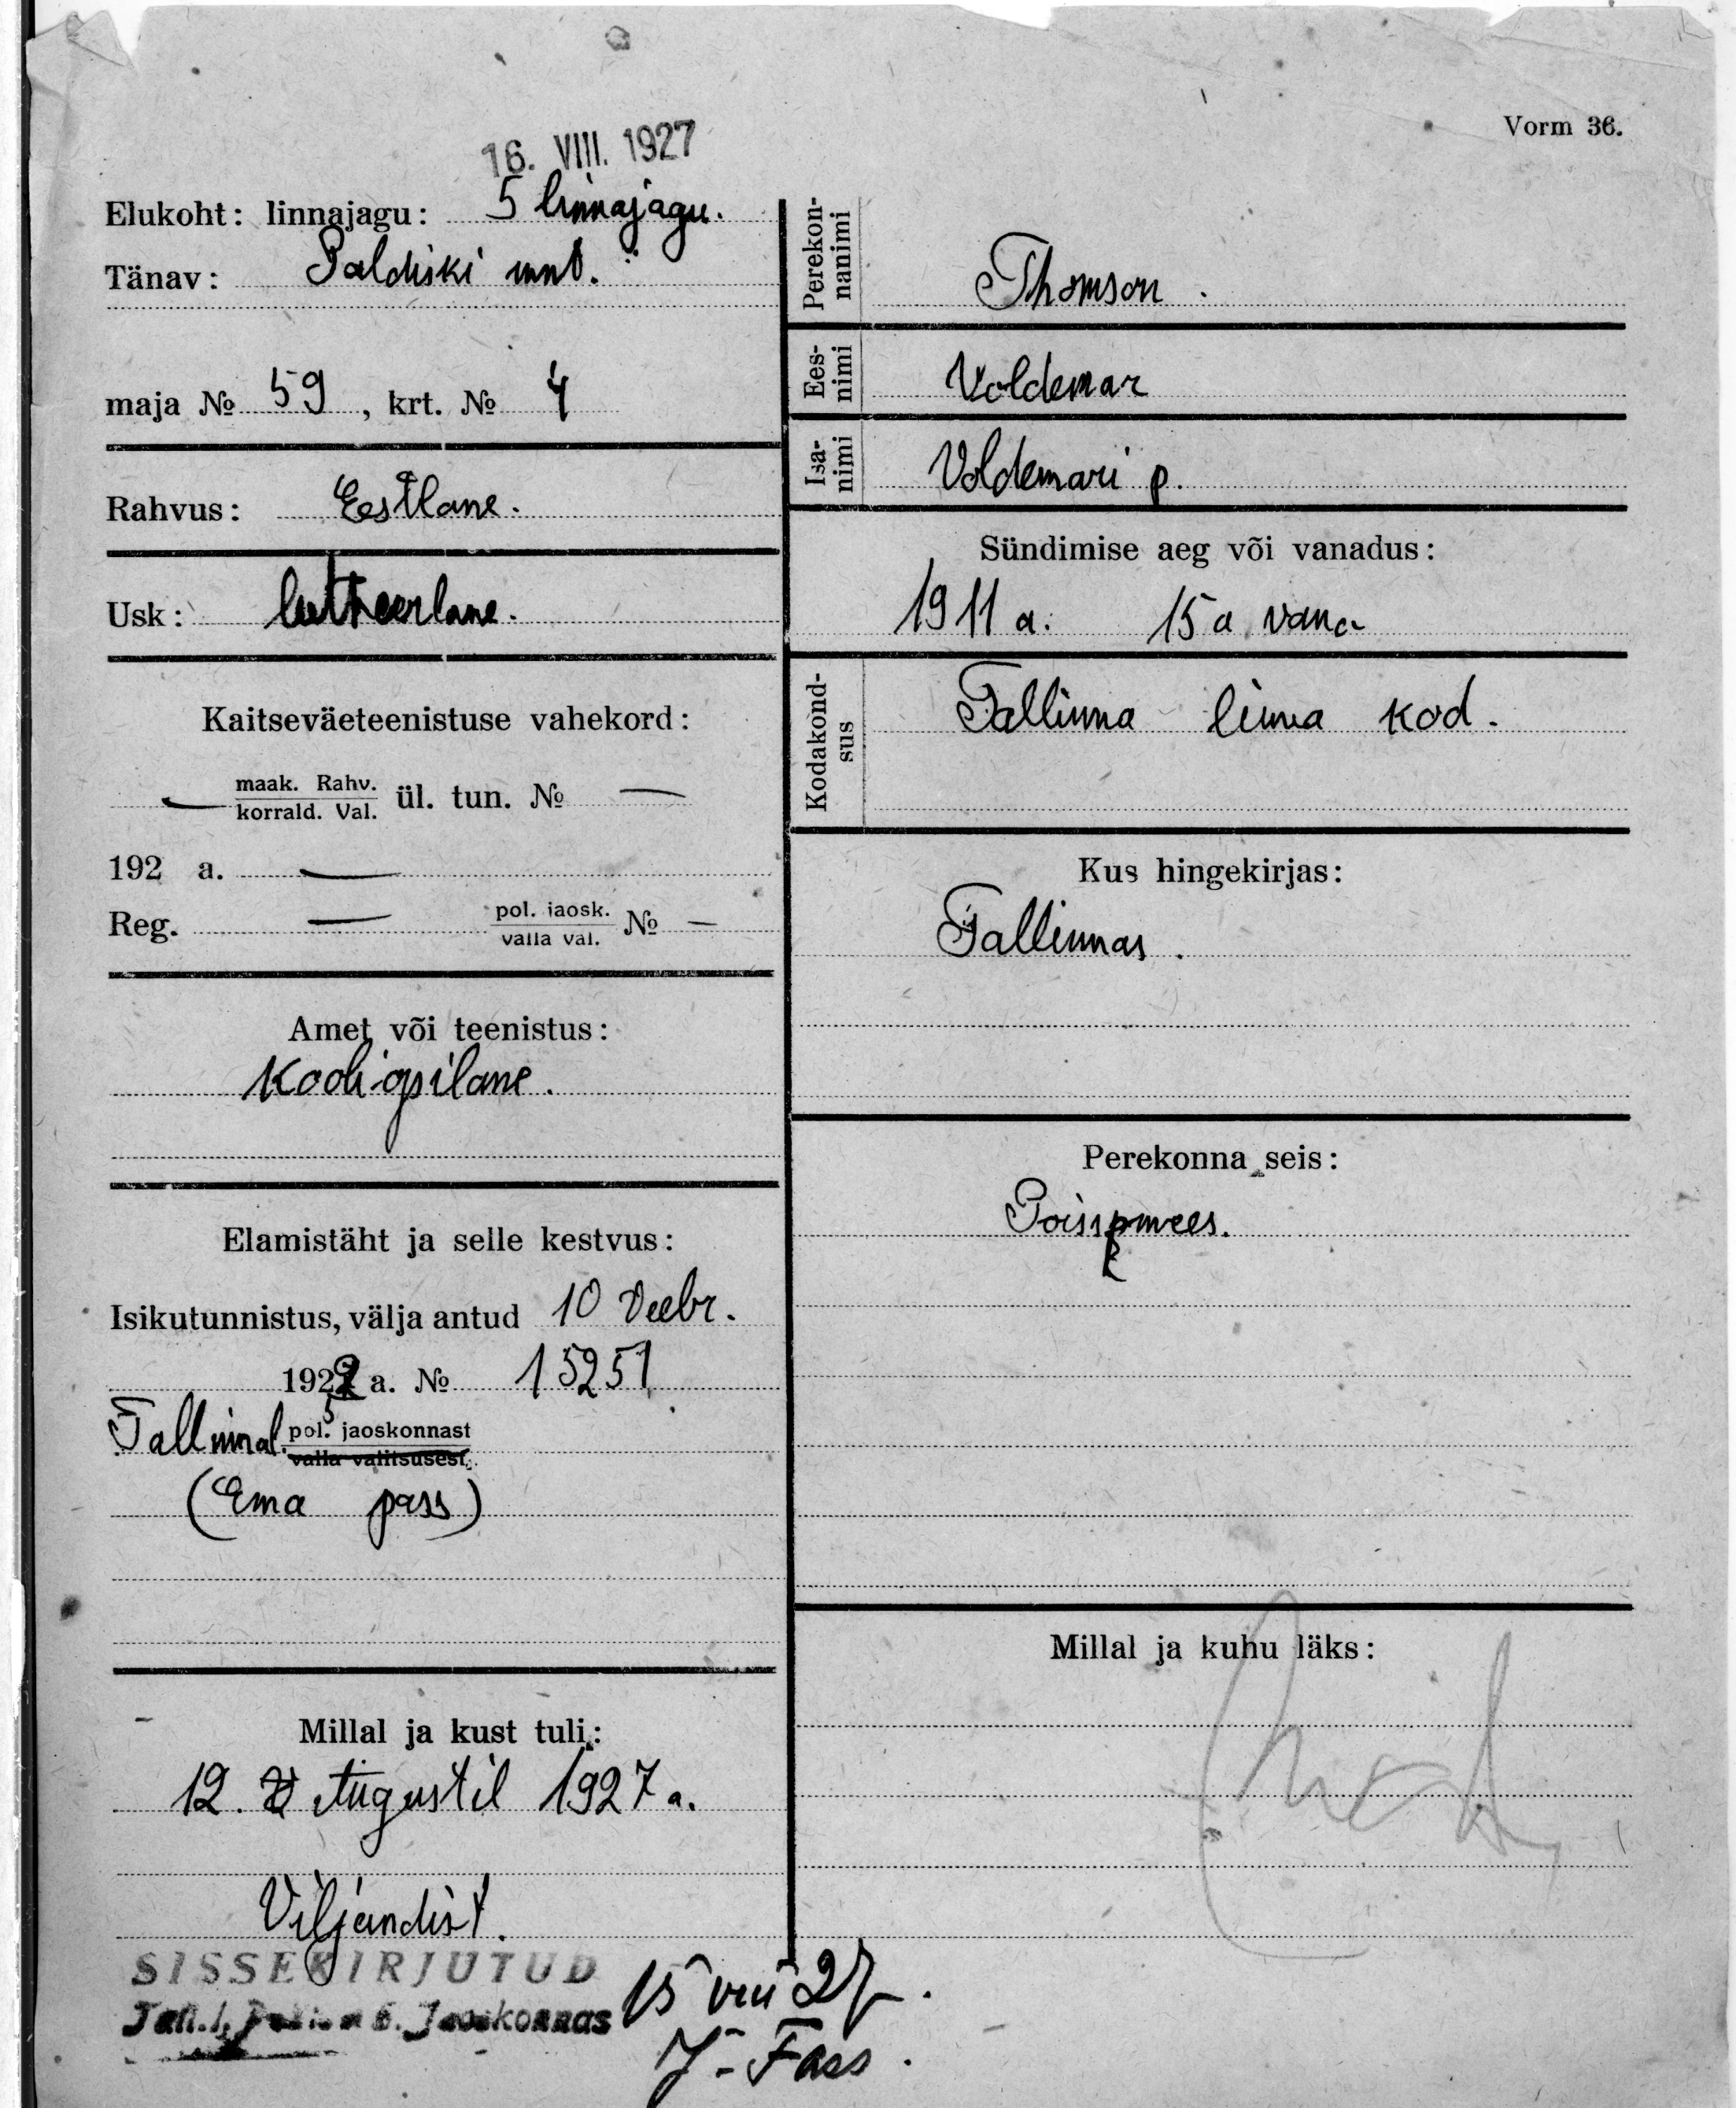 Vorm 36.
16. VIII. 1927
Elukoht: linnajagu: 5 linnajagu.
Tänav: Paldiski mnt.
maja № 59, krt. № 4
Rahvus: Eestlane.
Usk: lutheerlane.
Kaitseväeteenistuse vahekord:
— maak. Rahv.
korrald. Val. ül. tun. № —
192 a. —
Reg. — pol. jaosk.
valla val. № —
Amet või teenistus:
Kooliõpilane.
Elamistäht ja selle kestvus:
Isikutunnistus, välja antud 10 Veebr.
1922 a. № 15251
Tallinnal. 5 pol. jaoskonnast
valla valitsusest.
(Ema pass)
Millal ja kust tuli:
12. Augustil 1927 a.
Viljandist.
SISSEKIRJUTUD
Tall. Jaoskonnas
15 VIII 27.
J-Fass.
Perekon-
nanimi
Thomson.
Ees-
nimi
Voldemar
Isa-
nimi
Voldemari p.
Sündimise aeg või vanadus:
1911 a. 15 a. vana
Kodakond-
sus
Tallinna linna kod.
Kus hingekirjas:
Tallinnas.
Perekonna seis:
Poissmees.
Millal ja kuhu läks: